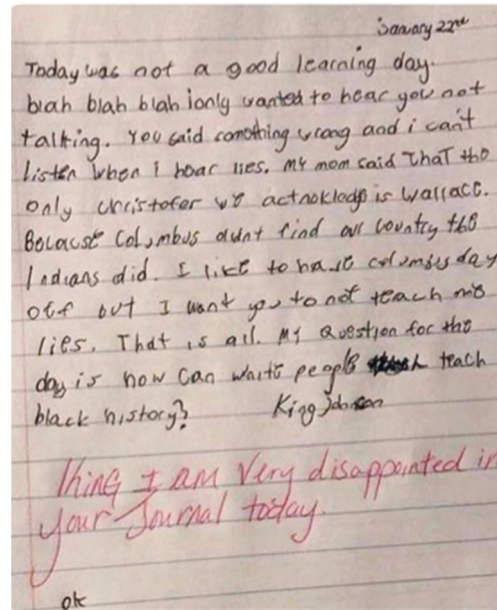 January 22nd
Today was not a good learning day.
blah blah blah i only wanted to hear you not
talking. You said something wrong and i can't
listen when i hear lies. My mom said That the
only christofer we acknoklodge is Wallace.
Because Columbus didnt find our country the
Indians did. I like to have columbus day
off but I want you to not teach me
lies. That is all. My question for the
day is how can white people teach
black history? King Johnson
King I am very disappointed in
your Journal today.
ok